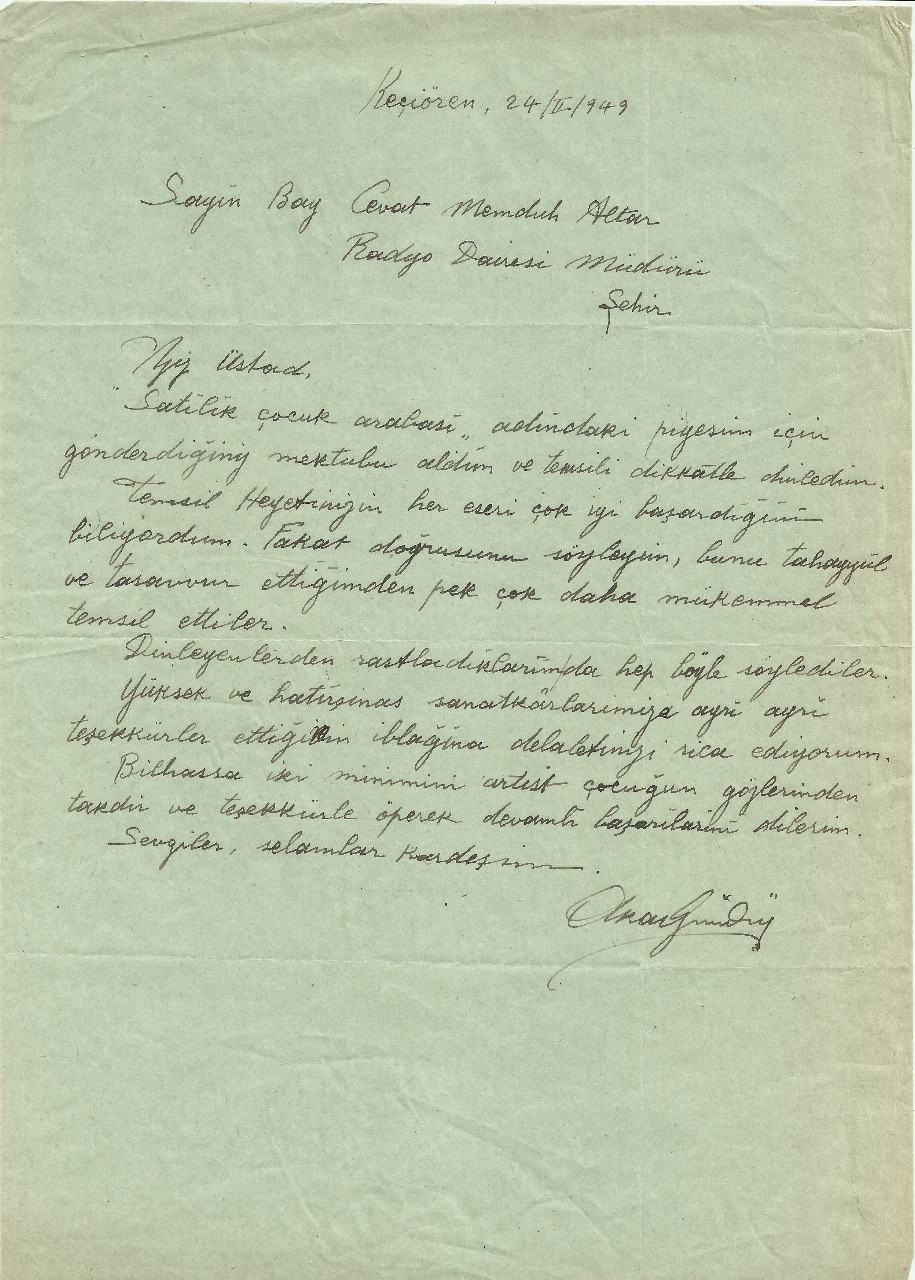 Keçiören, 24/II/1949
Sayin Bay Cevat Memduh Altar
Radyo Dairesi Müdürü
Şehir
Üstad,
"Satilik çocuk arabasi„ adindaki piyesim için
gönderdiğiniz mektubu aldim ve temsili dikkatle dinledim.
Temsil Heyetinizin her eseri çok iyi başardiğini
biliyordum. Fakat doğrusunu söyleyim, bunu tahayyül
ve tasavvur ettiğimden pek çok daha mükemmel
temsil ettiler.
Dinleyenlerden rastladiklarim da hep böyle söylediler.
Yüksek ve hatirşinas sanatkârlarimiza ayri ayri
teşekkürler ettiğimin iblağina delaletinizi rica ediyorum.
Bilhassa iki minimini artist çocuğun gözlerinden
takdir ve teşekkürle öperek devamli başarilarini dilerim.
Sevgiler, selamlar kardeşim.
Aka Gündüz